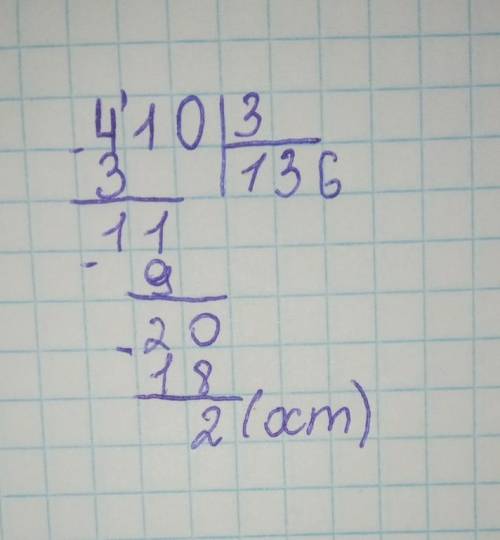 4'10 3
- 3 136
11
- 9
- 20
18
2 (ост)